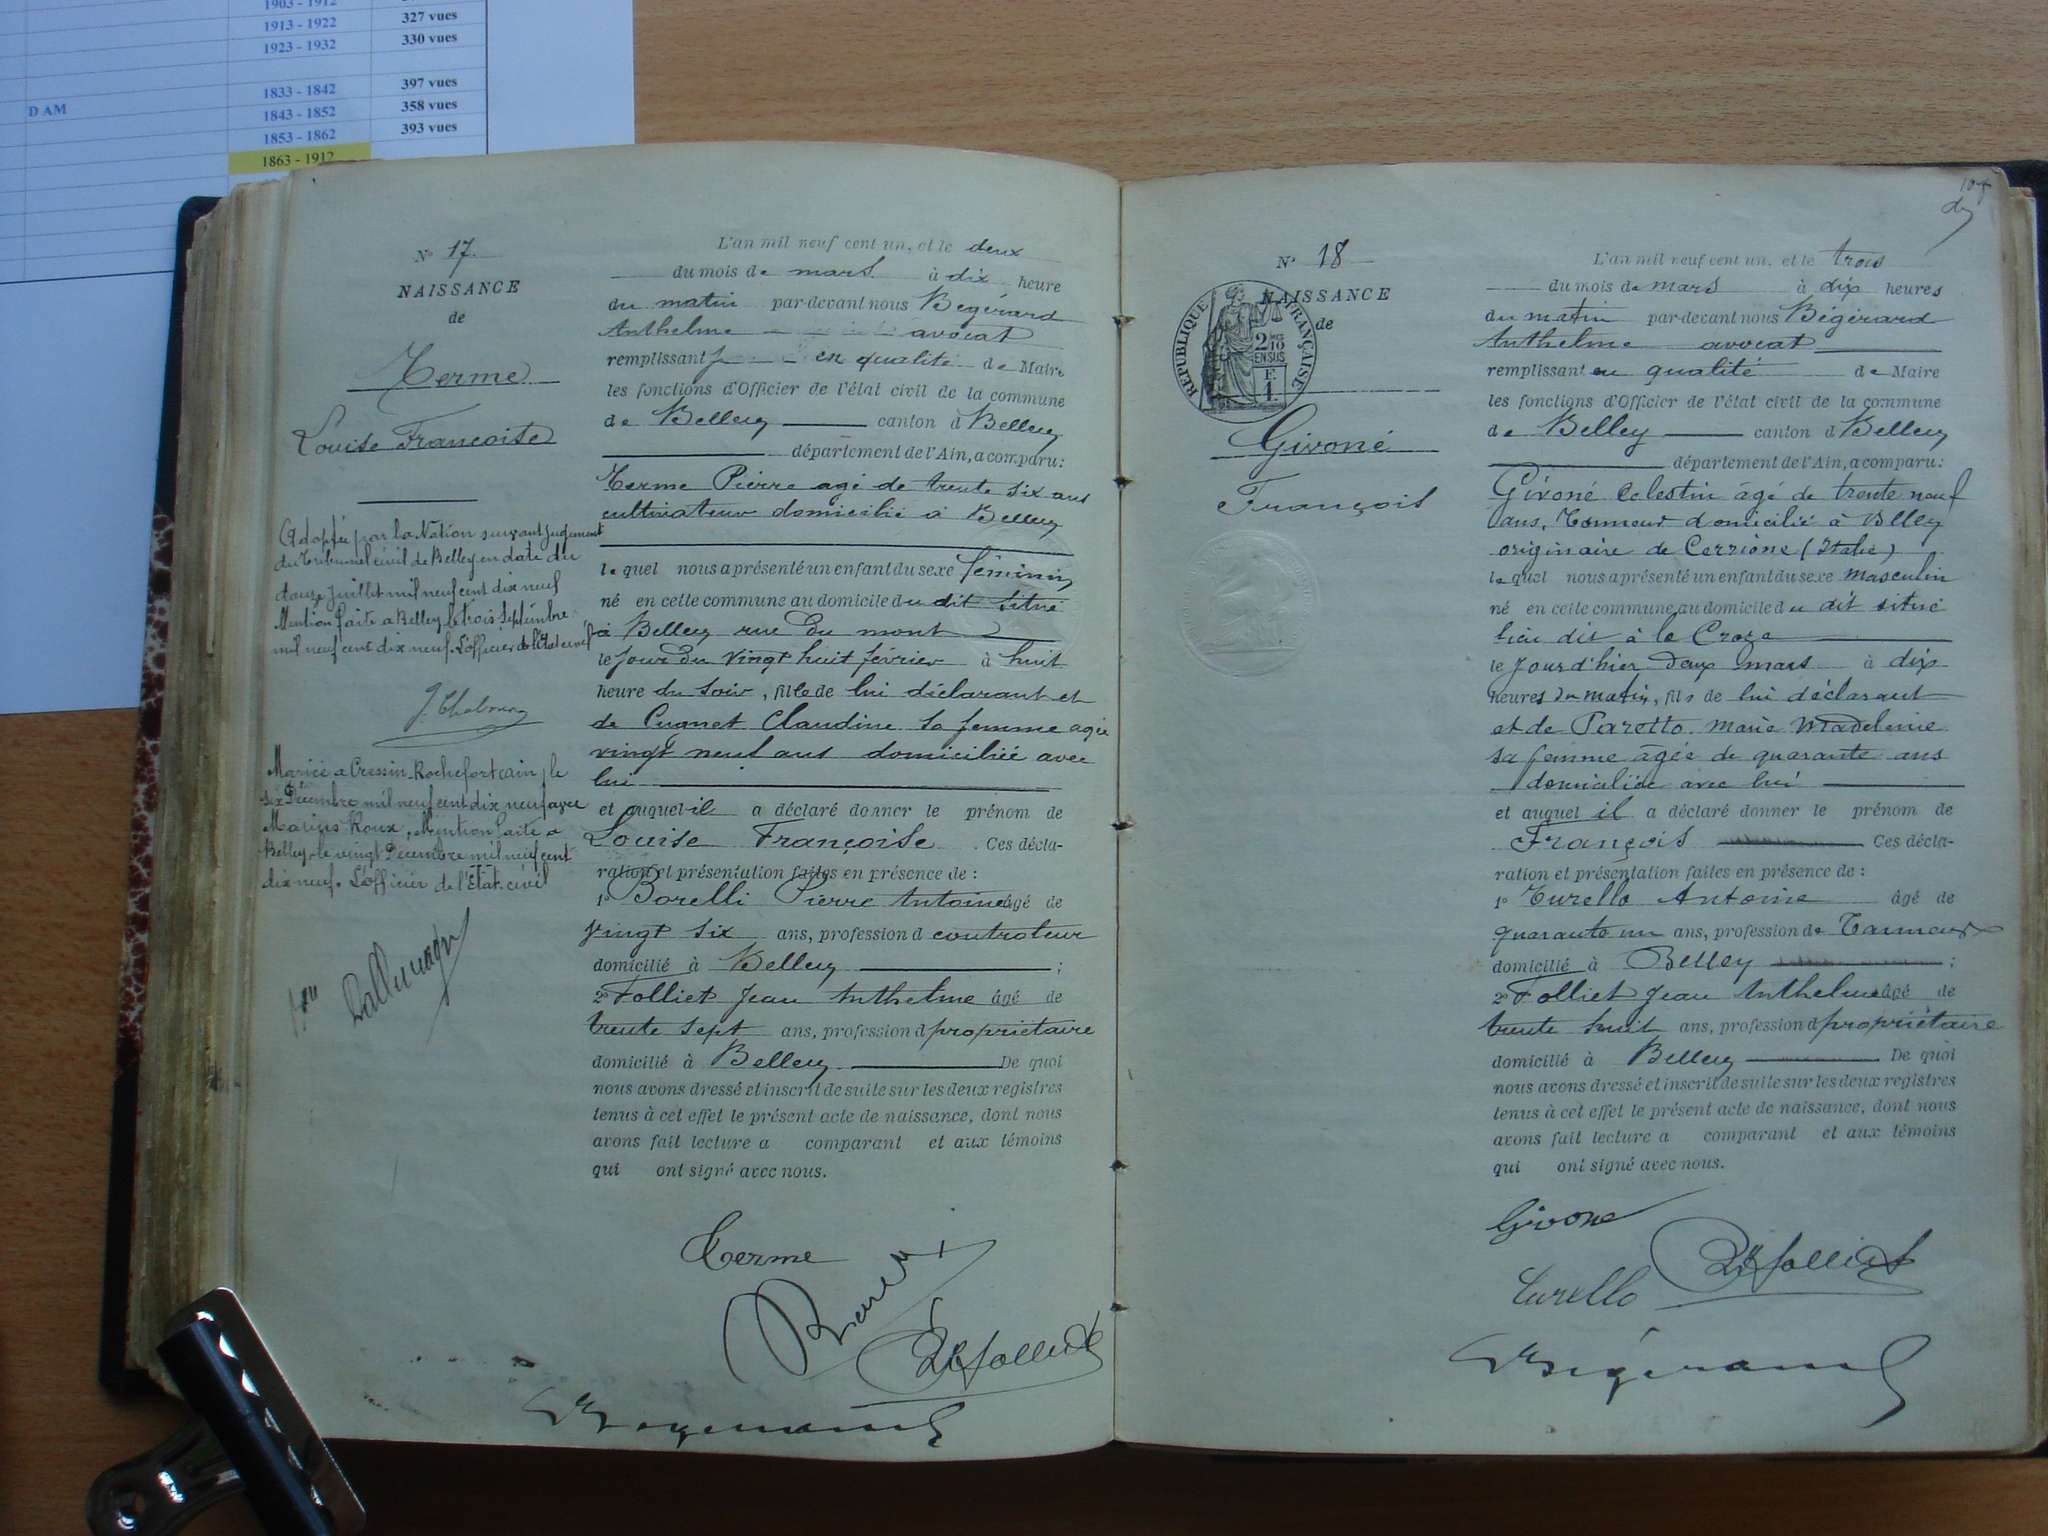 1903 - 1912
1913 - 1922 327 vues
1923 - 1932 330 vues
1833 - 1842 397 vues
D AM 1843 - 1852 358 vues
1853 - 1862 393 vues
1863 - 1912
N° 17.
NAISSANCE
de
Terme
Louise Françoise
Adoptée par la Nation suivant jugement
du Tribunal civil de Belley en date du
douze juillet mil neuf cent dix neuf
Mention faite a Belley le trois Septembre
mil neuf cent dix neuf. L'officier de l'Etat civil
Mariée a Cressin-Rochefort (ain) le
six Décembre mil neuf cent dix neuf avec
Marius Roux. Mention faite a
Belley le vingt Décembre mil neuf cent
dix neuf. L'officier de l'Etat-civil
L'an mil neuf cent un, et le deux
du mois de mars à dix heure
du matin par-devant nous Bégérard
Anthelme avocat
remplissant en qualité de Maire
les fonctions d'Officier de l'état civil de la commune
de Belley canton d Belley
département de l'Ain, a comparu:
Terme Pierre agé de trente six ans
cultivateur domicilié à Belley
lequel nous a présenté un enfant du sexe féminin
né en cette commune au domicile du dit situé
à Belley rue du mont
le jour du vingt huit février à huit
heure du soir, fille de lui déclarant et
de Cugnet Claudine sa femme agée
vingt neuf ans domiciliée avec
lui
et auquel il a déclaré donner le prénom de
Louise Françoise. Ces décla-
ration et présentation faites en présence de :
1° Borelli Pierre Antoine âgé de
vingt six ans, profession d controleur
domicilié à Belley ;
2° Folliet Jean Anthelme âgé de
trente sept ans, profession d propriétaire
domicilié à Belley De quoi
nous avons dressé et inscrit de suite sur les deux registres
tenus à cet effet le présent acte de naissance, dont nous
avons fait lecture a comparant et aux témoins
qui ont signé avec nous.
Terme
N° 18
NAISSANCE
de
RÉPUBLIQUE FRANÇAISE
2/10 EN SUS
F. 1.
Givoné
François
L'an mil neuf cent un, et le trois
du mois de mars à dix heures
du matin par-devant nous Bégérard
Anthelme avocat
remplissant en qualité de Maire
les fonctions d'Officier de l'état civil de la commune
de Belley canton d Belley
département de l'Ain, a comparu:
Givoné Celestin âgé de trente neuf
ans, Tanneur domicilié à Belley
originaire de Cerrione (Italie)
lequel nous a présenté un enfant du sexe masculin
né en cette commune au domicile du dit situé
lieu dit à la Croze
le jour d'hier deux mars à dix
heures du matin, fils de lui déclarant
et de Parotto Marie Madeleine
sa femme âgée de quarante ans
domiciliée avec lui
et auquel il a déclaré donner le prénom de
François Ces décla-
ration et présentation faites en présence de :
1° Turello Antoine âgé de
quarante un ans, profession de Tanneur
domicilié à Belley ;
2° Folliet Jean Anthelme âgé de
trente huit ans, profession d propriétaire
domicilié à Belley De quoi
nous avons dressé et inscrit de suite sur les deux registres
tenus à cet effet le présent acte de naissance, dont nous
avons fait lecture a comparant et aux témoins
qui ont signé avec nous.
Givone
Turello